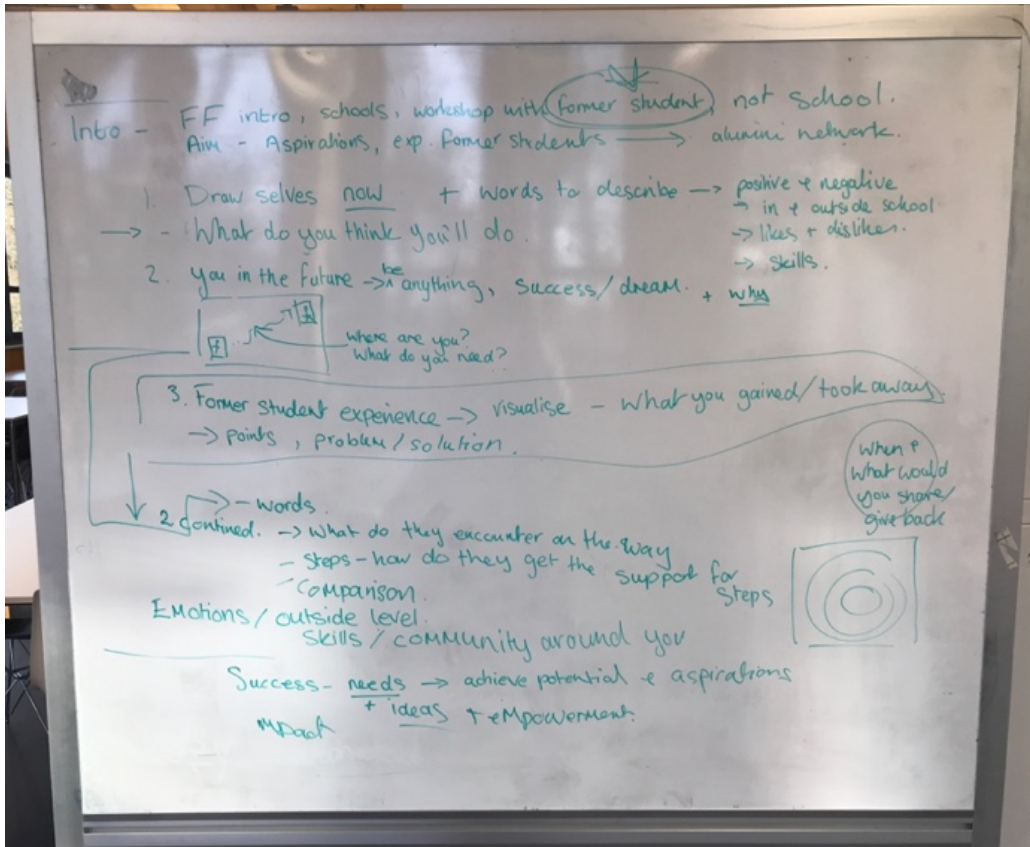 Intro - FF intro, schools, workshop with former student, not school.
Aim - Aspirations, exp. former students → alumini network.
1. Draw selves now + words to describe → positive + negative
→ in + outside school
→ likes + dislikes.
→ skills.
→ - What do you think you'll do.
2. you in the future → be anything, success/dream. + why
where are you?
What do you need?
3. Former student experience → visualise - What you gained/took away
→ points, problem/solution.
When +
what would
you share/
give back
→ - words.
2 contined. → what do they encounter on the way
- Steps - how do they get the support for
steps
- Comparison.
Emotions / outside level.
Skills / community around you
Success - needs → achieve potential + aspirations
+ ideas + empowerment.